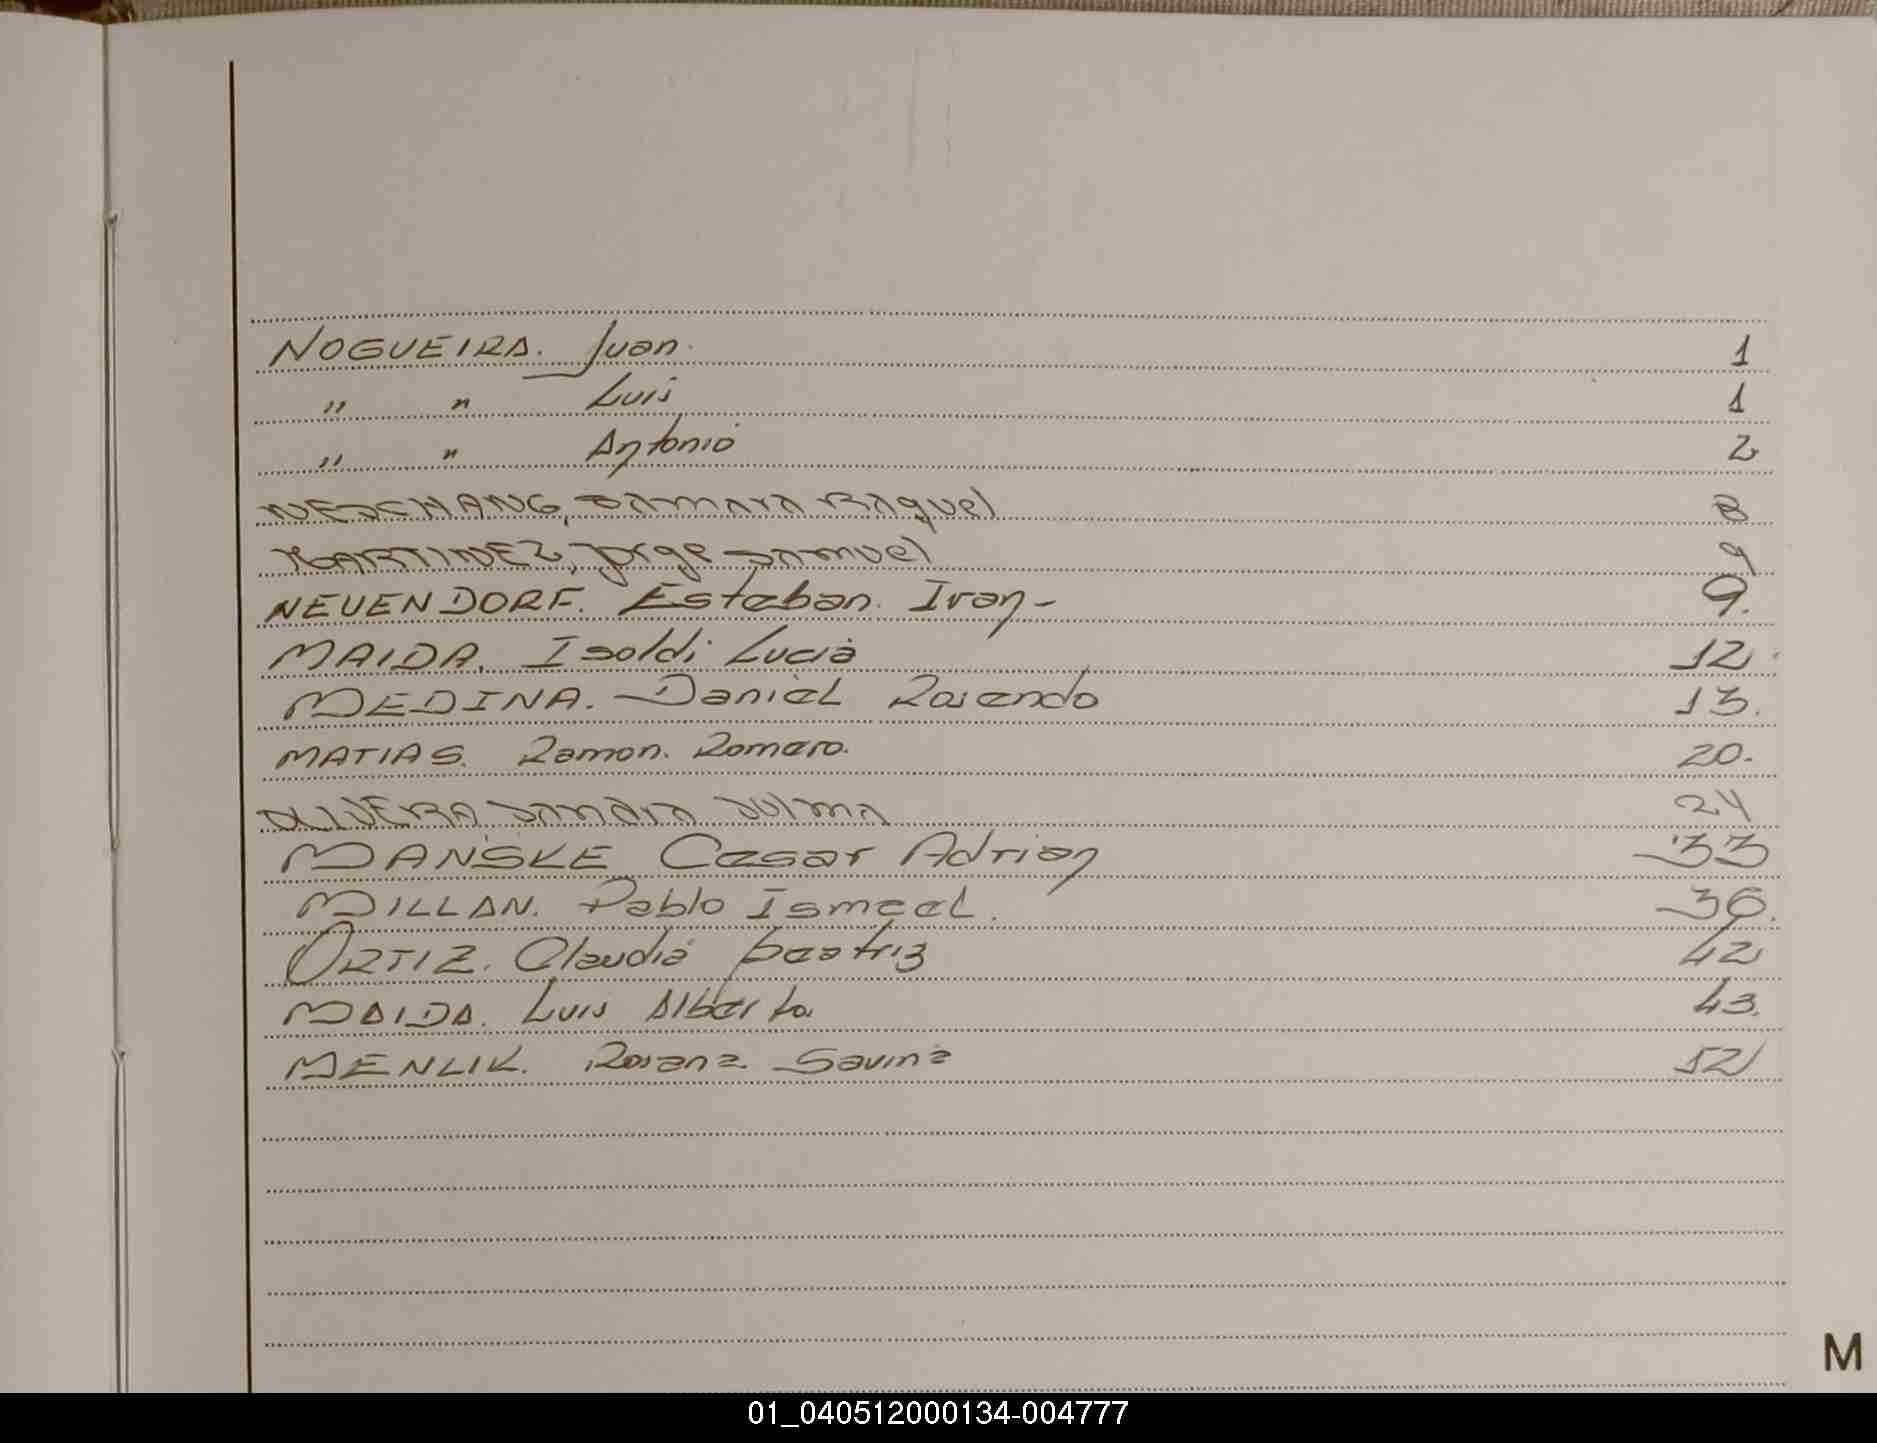 NOGUEIRA. Juan. 1
" " Luis 1
" " Antonio 2
NESCHANG, Samara Raquel 8
MARTINEZ, Jorge Samuel 9
NEUENDORF. Esteban. Ivan- 9.
MAIDA. Isoldi Lucia 12.
MEDINA. Daniel Rosendo 13.
MATIAS. Ramon. Romero. 20.
OLIVERA Sandra Sulma 24
MANSKE Cesar Adrian 33
MILLAN. Pablo Ismael. 36.
ORTIZ. Claudia beatriz 42
MAIDA. Luis Alberto 43.
MENLIK. Rosana Savina 52
M
01_040512000134-004777